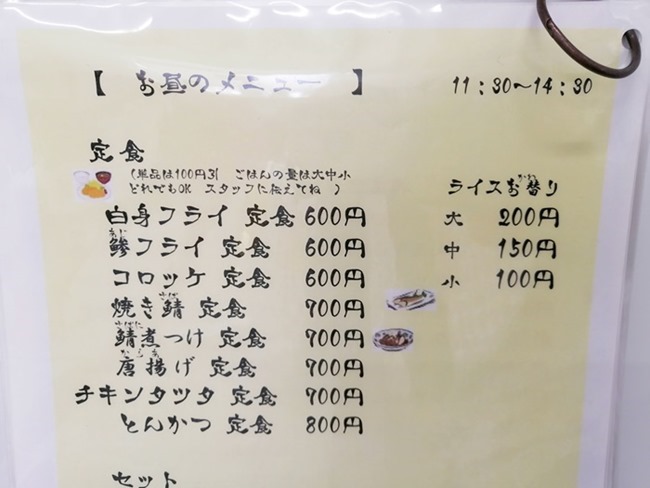 【 お昼のメニュー 】 11:30〜14:30
定食
(単品は100円引 ごはんの量は大中小
どれでもOK スタッフに伝えてね )
ライスお替り
白身フライ 定食 600円 大 200円
鯵フライ 定食 600円 中 150円
コロッケ 定食 600円 小 100円
焼き鯖 定食 700円
鯖煮つけ 定食 700円
唐揚げ 定食 700円
チキンタツタ 定食 700円
とんかつ 定食 800円
セット